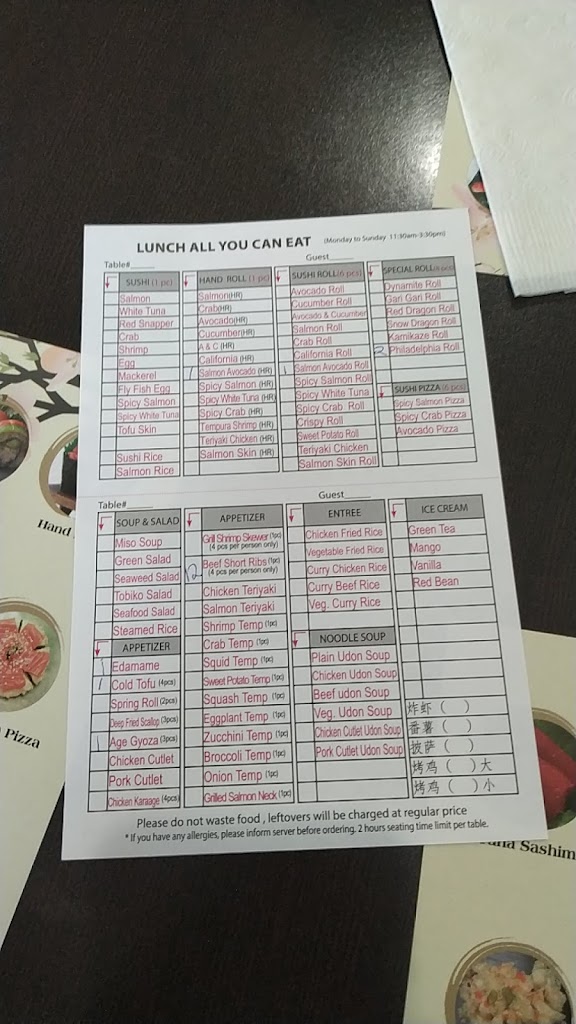 LUNCH ALL YOU CAN EAT (Monday to Sunday 11:30am-3:30pm)
Table#
Guest
SUSHI (1 pc)
Salmon
White Tuna
Red Snapper
Crab
Shrimp
Egg
Mackerel
Fly Fish Egg
Spicy Salmon
Spicy White Tuna
Tofu Skin
Sushi Rice
Salmon Rice
HAND ROLL (1 pc)
Salmon(HR)
Crab(HR)
Avocado(HR)
Cucumber(HR)
A & C (HR)
California (HR)
1 Salmon Avocado (HR)
Spicy Salmon (HR)
Spicy White Tuna (HR)
Spicy Crab (HR)
Tempura Shrimp (HR)
Teriyaki Chicken (HR)
Salmon Skin (HR)
SUSHI ROLL(6 pcs)
Avocado Roll
Cucumber Roll
Avocado & Cucumber
Salmon Roll
Crab Roll
California Roll
1 Salmon Avocado Roll
Spicy Salmon Roll
Spicy White Tuna
Spicy Crab Roll
Crispy Roll
Sweet Potato Roll
Teriyaki Chicken
Salmon Skin Roll
SPECIAL ROLL(8 pcs)
Dynamite Roll
Gari Gari Roll
Red Dragon Roll
Snow Dragon Roll
Kamikaze Roll
2 Philadelphia Roll
SUSHI PIZZA (6 pcs)
Spicy Salmon Pizza
Spicy Crab Pizza
Avocado Pizza
Table#
Guest
SOUP & SALAD
Miso Soup
Green Salad
Seaweed Salad
Tobiko Salad
Seafood Salad
Steamed Rice
APPETIZER
1 Edamame
1 Cold Tofu (4pcs)
Spring Roll (2pcs)
Deep Fried Scallop (3pcs)
1 Age Gyoza (3pcs)
Chicken Cutlet
Pork Cutlet
Chicken Karaage (4pcs)
APPETIZER
Grill Shrimp Skewer (1pc)
(4 pcs per person only)
12 Beef Short Ribs (1pc)
(4 pcs per person only)
Chicken Teriyaki
Salmon Teriyaki
Shrimp Temp (1pc)
Crab Temp (1pc)
Squid Temp (1pc)
Sweet Potato Temp (1pc)
Squash Temp (1pc)
Eggplant Temp (1pc)
Zucchini Temp (1pc)
Broccoli Temp (1pc)
Onion Temp (1pc)
Grilled Salmon Neck (1pc)
ENTREE
Chicken Fried Rice
Vegetable Fried Rice
Curry Chicken Rice
Curry Beef Rice
Veg. Curry Rice
NOODLE SOUP
Plain Udon Soup
Chicken Udon Soup
Beef udon Soup
Veg. Udon Soup
Chicken Cutlet Udon Soup
Pork Cutlet Udon Soup
ICE CREAM
Green Tea
Mango
Vanilla
Red Bean
炸虾 ( )
番薯 ( )
披萨 ( )
烤鸡 ( ) 大
烤鸡 ( ) 小
Please do not waste food , leftovers will be charged at regular price
* If you have any allergies, please inform server before ordering. 2 hours seating time limit per table.
Hand
Pizza
Tuna Sashim